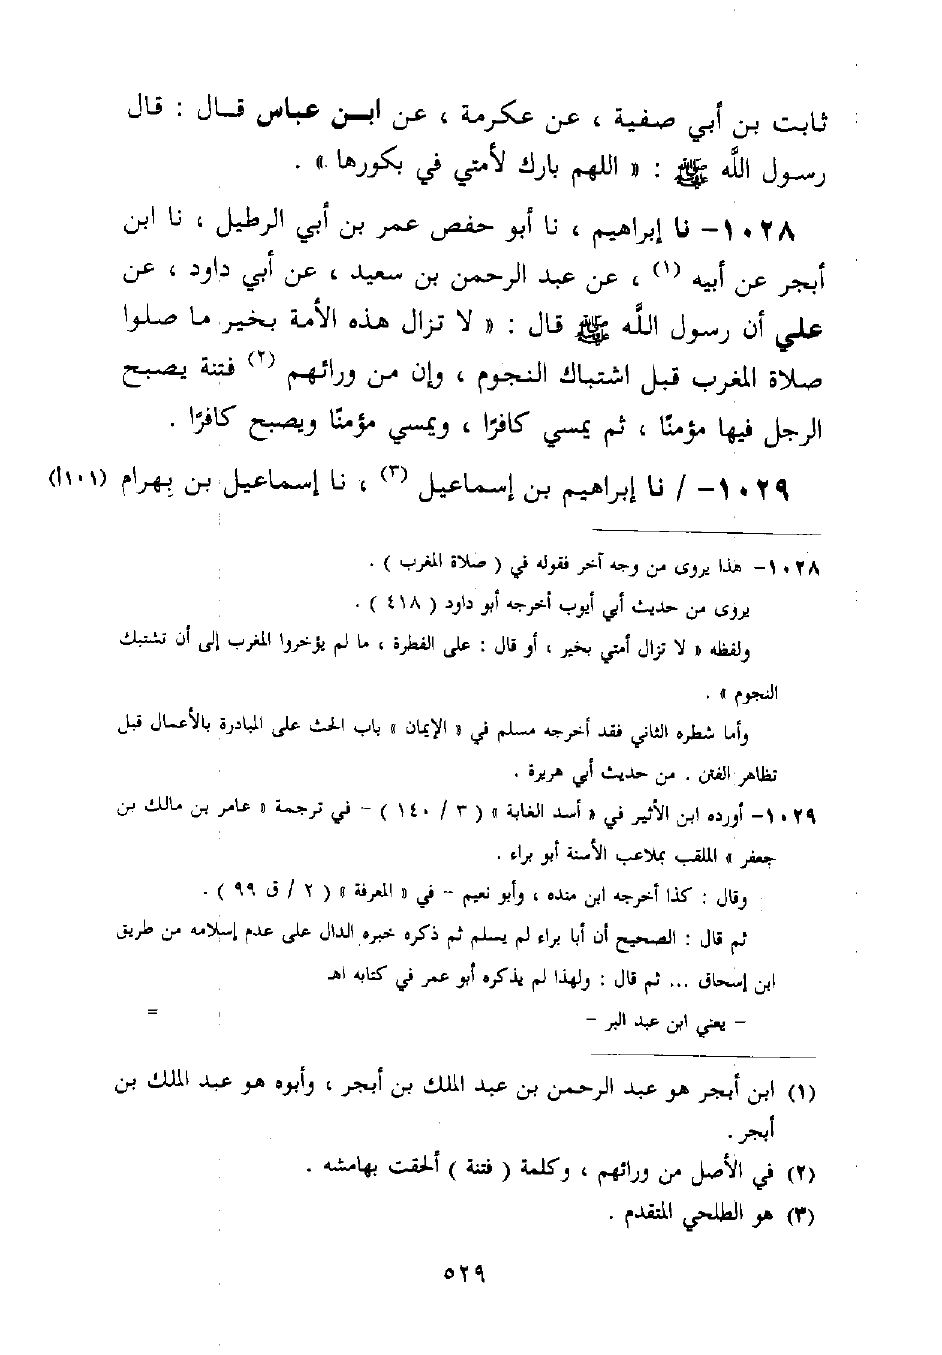 ثابت بن أبي صفية ، عن عكرمة ، عن ابـن عباس قـال : قال
رسول اللَّه ﷺ : « اللهم بارك لأمتي في بكورها » .
١٠٢٨– نا إبراهيم ، نا أبو حفص عمر بن أبي الرطيل ، نا ابن
أبجر عن أبيه (١) ، عن عبد الرحمن بن سعيد ، عن أبي داود ، عن
علي أن رسول اللَّه ﷺ قال : « لا تزال هذه الأمة بخير ما صلوا
صلاة المغرب قبل اشتباك النجوم ، وإن من ورائهم (٢) فتنة يصبح
الرجل فيها مؤمنًا ، ثم يمسي كافرًا ، ويمسي مؤمنًا ويصبح كافرًا .
١٠٢٩– / نا إبراهيم بن إسماعيل (٣) ، نا إسماعيل بن بِهرام (١٠١أ)
١٠٢٨– هذا يروى من وجه آخر فقوله في ( صلاة المغرب ) .
يروى من حديث أبي أيوب أخرجه أبو داود ( ٤١٨ ) .
ولفظه « لا تزال أمتي بخير ، أو قال : على الفطرة ، ما لم يؤخروا المغرب إلى أن تشتبك
النجوم » .
وأما شطره الثاني فقد أخرجه مسلم في « الإيمان » باب الحث على المبادرة بالأعمال قبل
تظاهر الفتن . من حديث أبي هريرة .
١٠٢٩– أورده ابن الأثير في « أسد الغابة » ( ٣ / ١٤٠ ) – في ترجمة « عامر بن مالك بن
جعفر » الملقب بملاعب الأسنة أبو براء .
وقال : كذا أخرجه ابن منده ، وأبو نعيم – في « المعرفة » ( ٢ / ق ٩٩ ) .
ثم قال : الصحيح أن أبا براء لم يسلم ثم ذكره خبره الدال على عدم إسلامه من طريق
ابن إسحاق ... ثم قال : ولهذا لم يذكره أبو عمر في كتابه اهـ
– يعني ابن عبد البر – =
(١) ابن أبجر هو عبد الرحمن بن عبد الملك بن أبجر ، وأبوه هو عبد الملك بن
أبجر .
(٢) في الأصل من ورائهم ، وكلمة ( فتنة ) ألحقت بهامشه .
(٣) هو الطلحي المتقدم .
٥٢٩